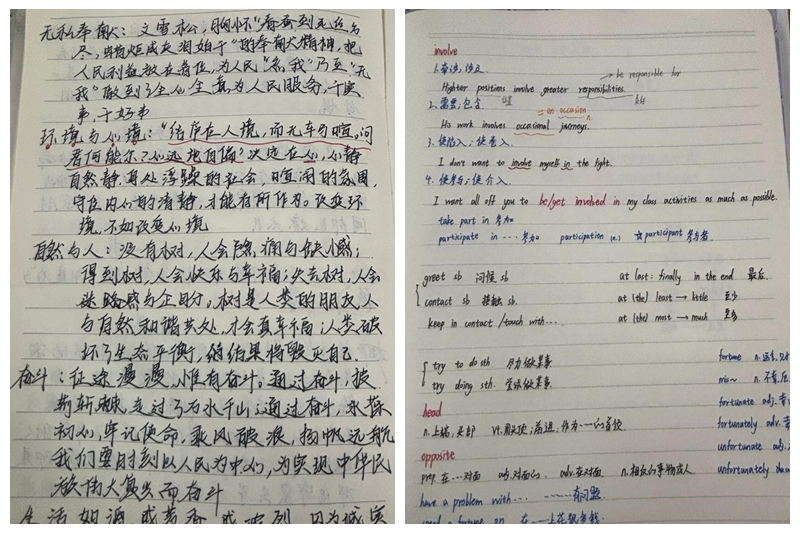 无私奉献：文雪松，胸怀"春蚕到死丝方
尽，蜡炬成灰泪始干"的奉献精神，把
人民利益放在首位，为人民"忘我"乃至"无
我"做到了全心全意为人民服务，干实
事，干好事
环境与心境："结庐在人境，而无车马喧。问
君何能尔？心远地自偏"决定在心，心静
自然静，再处浮躁的社会，喧闹的氛围，
守住内心的清静，才能有所作为。改变环
境，不如改变心境
自然与人：没有树，人会陷痛与缺憾；
得到树，人会快乐与幸福；失去树，人会
迷路感与企盼，树是人类的朋友，人
与自然和谐共处，才会真幸福；人类破
坏了生态平衡，结果将毁灭自己
奋斗：征途漫漫，惟有奋斗。通过奋斗，披
荆斩棘，走过了万水千山；通过奋斗，永葆
初心，牢记使命，乘风破浪，扬帆远航
我们要时刻以人民为中心，为实现中华民
族伟大复兴而奋斗
involve
1. 牵涉，涉及 → be responsible for
Highter positions involve greater responsibilities.
2. 需要，包含 = on occasion
His work involves occasional journeys.
3. 使陷入，使卷入
I don't want to involve myself in the fight.
4. 使参与，使介入
I want all off you to be/get involved in my class activities as much as possible.
take part in 参加
participate in ···· 参加 participation (n.) ☆participant 参与者
greet sb 问候 sb at last: finally in the end 最后
contact sb 接触 sb. at (the) least → little 至少
keep in contact /touch with··· at (the) most → much 至多
try to do sth. 尽力做某事 fortune n.
try doing sth. 尝试做某事 mis~ n. 不幸
head fortunate adj.
n. 上端，头部 vt. 朝 前进；作为····的首领 fortunately adv.
opposite unfortunate adj.
prep 在···对面 adj. 对面的 adv. 在对面 n. 相反的事物或人 unfortunately
have a problem with··· ····有问题
spend a fortune on 在····上花很多钱